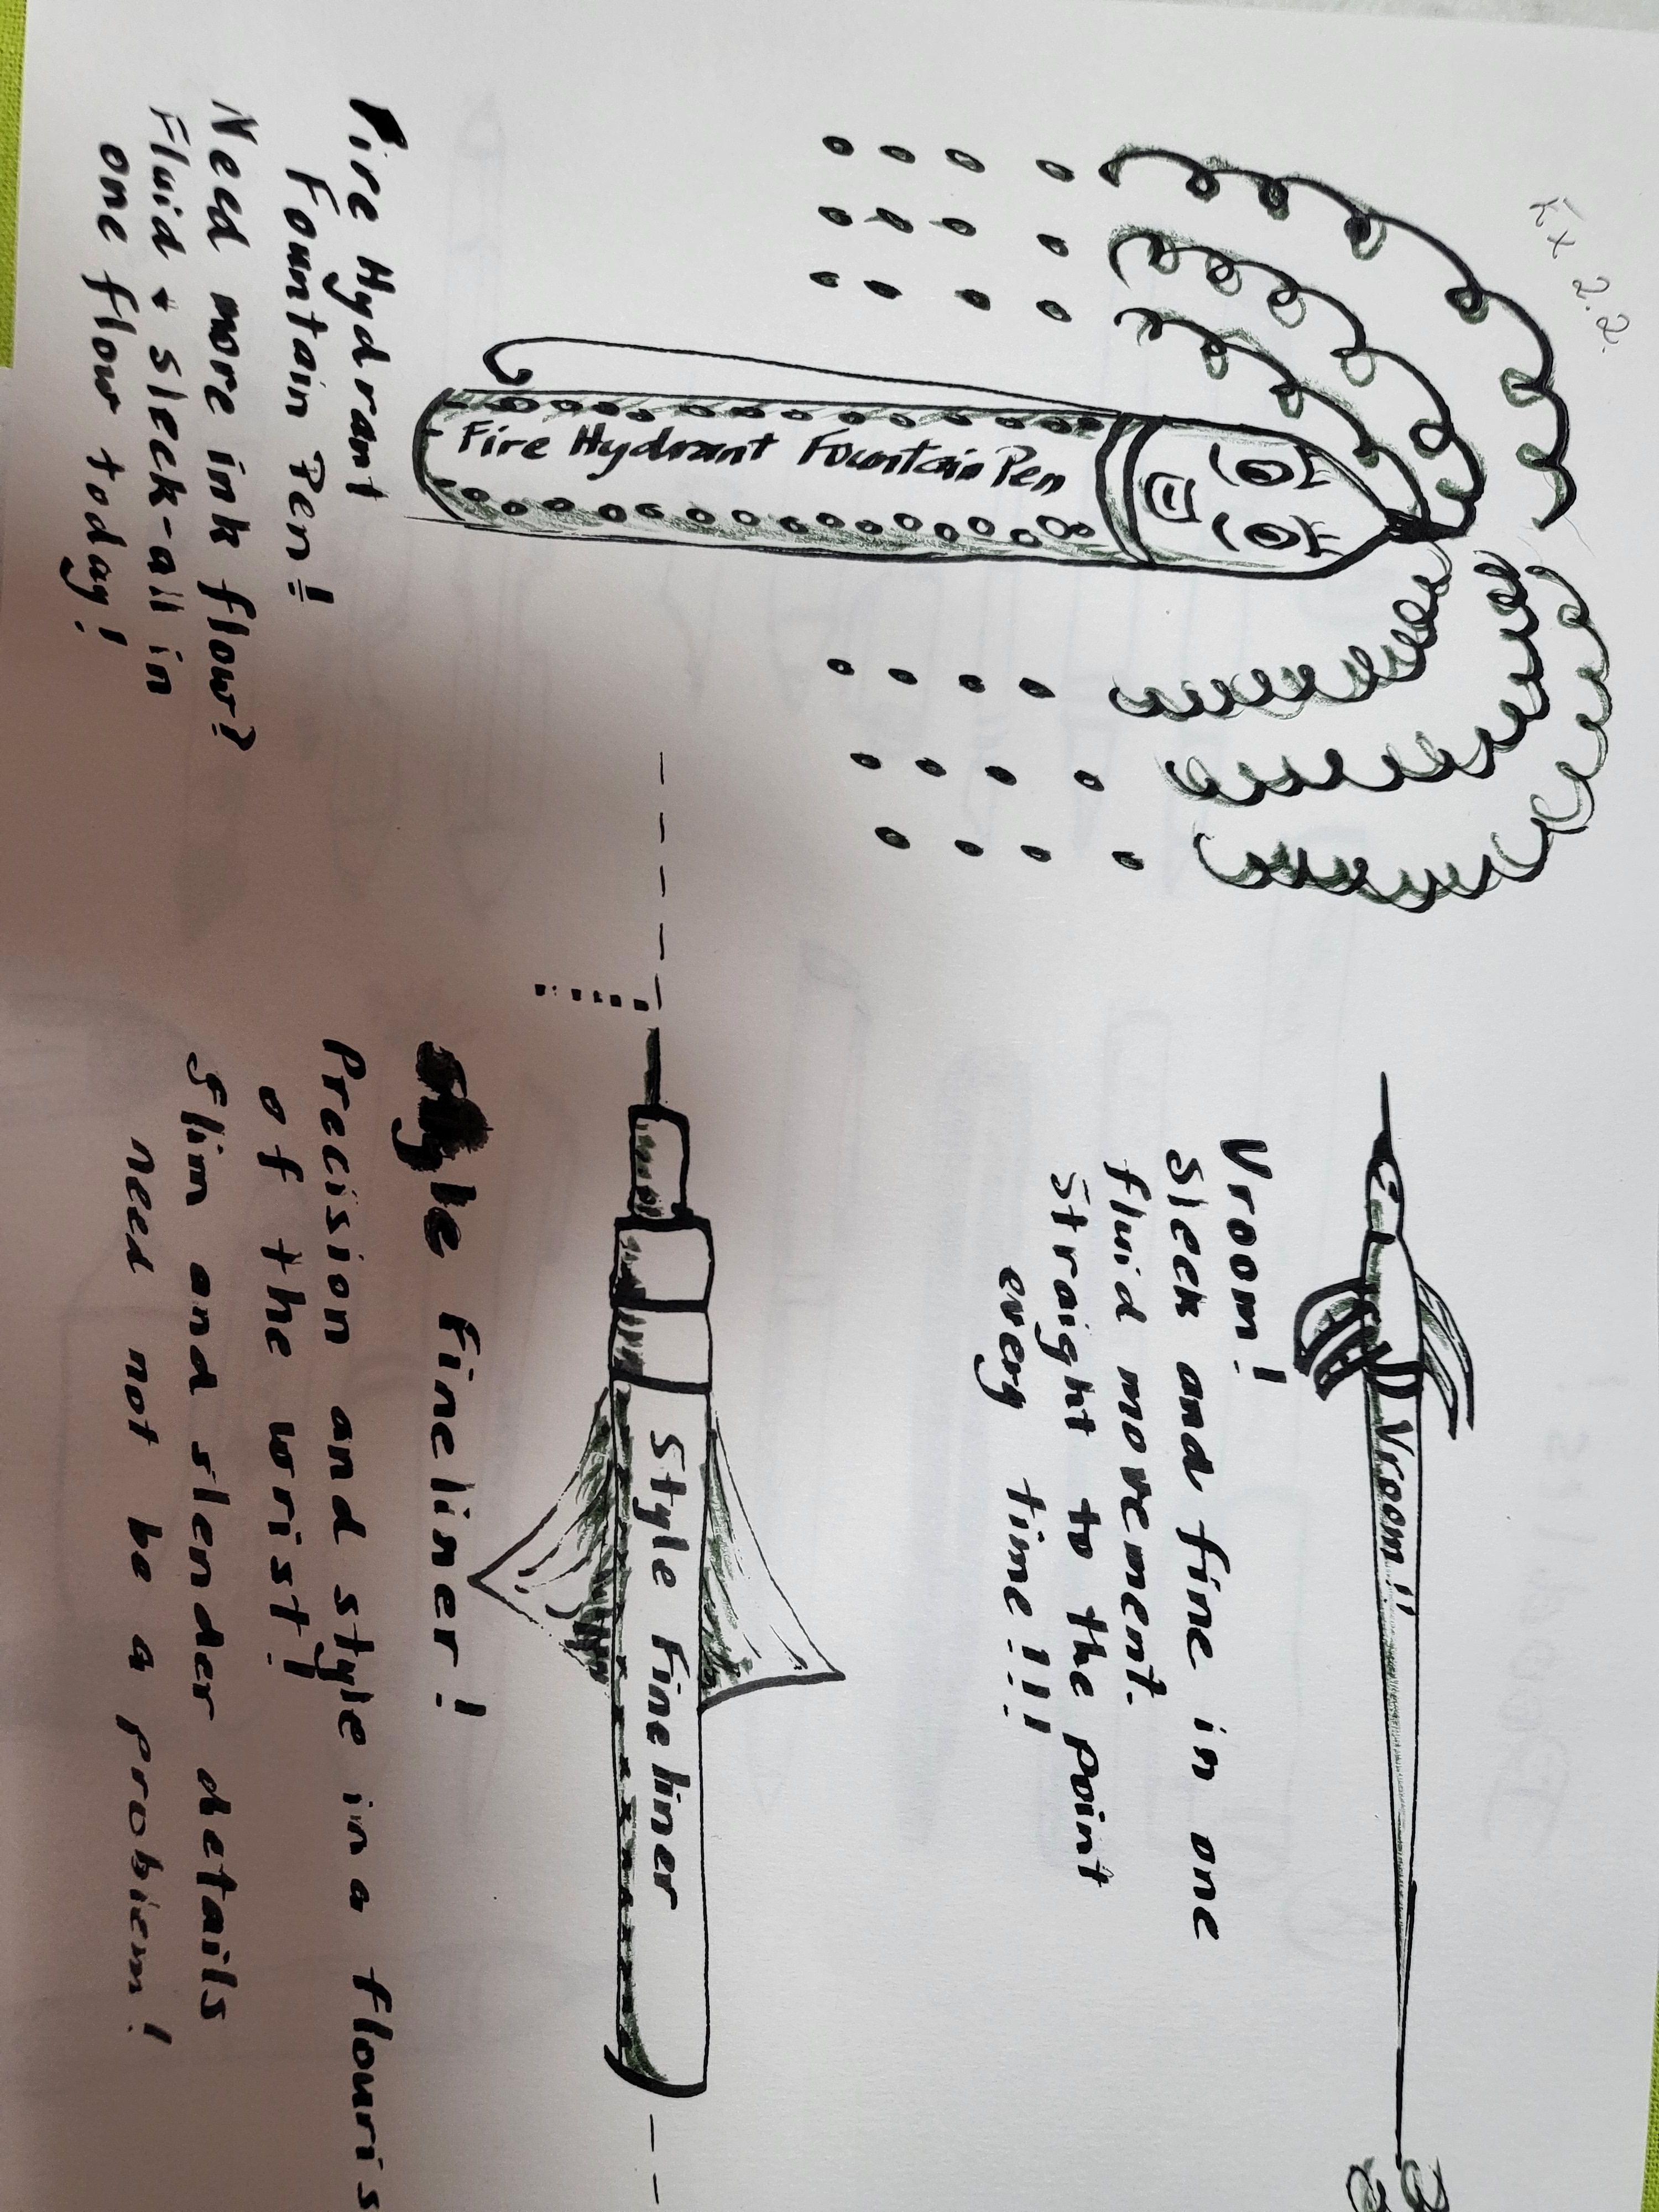 Ex 2.2.
Fire Hydrant Fountain Pen
Fire Hydrant
Fountain Pen!
Need more ink flow?
Fluid + sleek-all in
one flow today!
Vroom!!
Vroom!
Sleek and fine in one
fluid movement.
Straight to the point
every time!!!!
Style Fineliner
Style Fineliner!
Precision and style in a flouris
of the wrist!
Slim and slender details
need not be a problem!